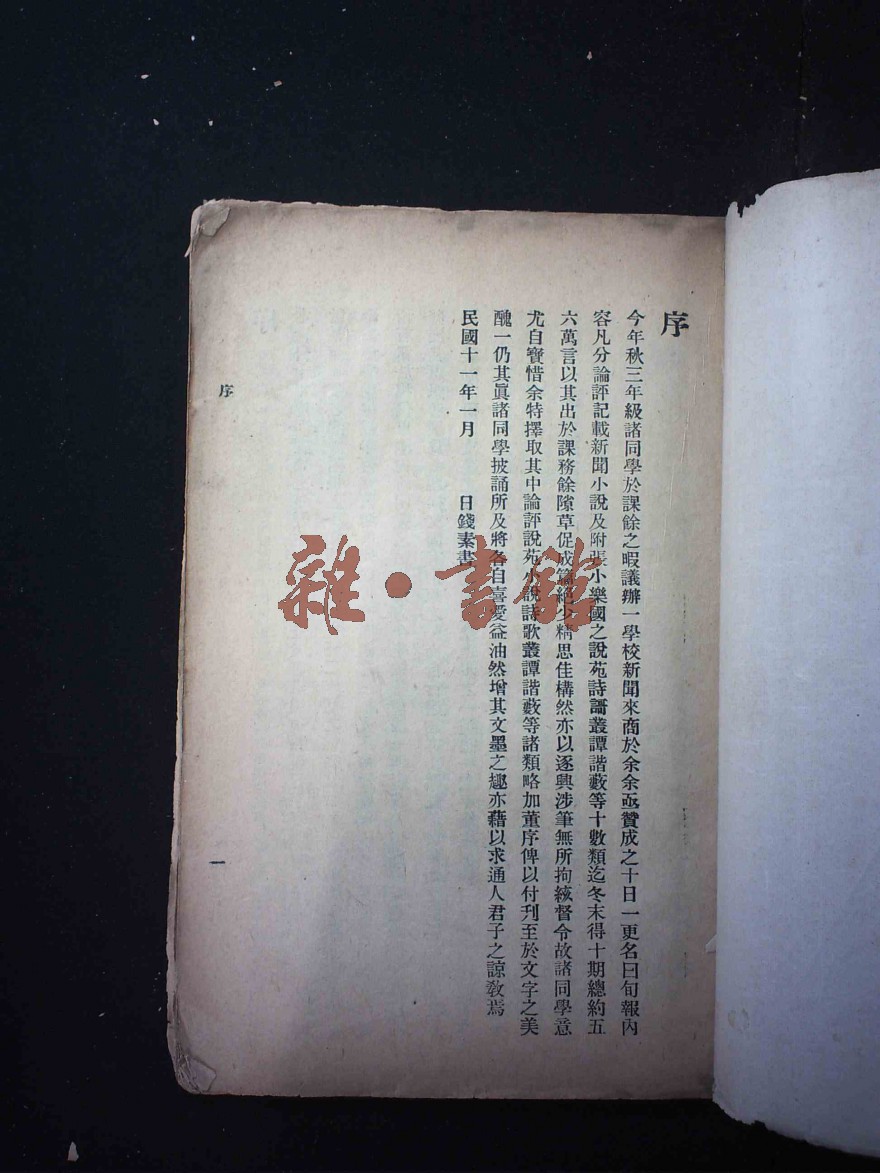 序
今年秋三年級諸同學於課餘之暇議辦一學校新聞來商於余余亟贊成之十日一更名曰旬報內
容凡分論評記載新聞小說及附張小樂國之說苑詩話叢譚諧藪等十數類迄冬末得十期總約五
六萬言以其出於課務餘隙草促成篇絕少精思佳構然亦以逐興涉筆無所拘絃督令故諸同學意
尤自寶惜余特擇取其中論評說苑小說詩歌叢譚諧藪等諸類略加董序俾以付刊至於文字之美
醜一仍其眞諸同學披誦所及將各自喜愛益油然增其文墨之趣亦藉以求通人君子之諒教焉
民國十一年一月 日錢素書
序
一
雜·書館